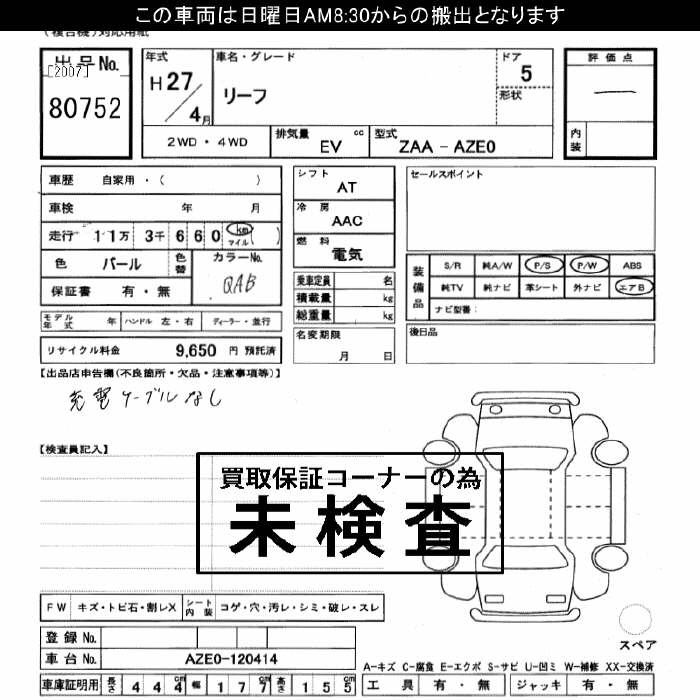 この車両は日曜日AM8:30からの搬出となります
(複合機)対応用紙
出品No.
[2007]
80752
年式
H27/4月
車名・グレード
リーフ
ドア
5
形状
評価点
一
内装
2WD・4WD
排気量 cc
EV
型式
ZAA－AZE0
車歴 自家用・( )
車検 年 月
走行 11万3千660 km マイル ( )
色 パール 色替 カラーNo. QAB
保証書 有・無
モデル年式 年 ハンドル 左・右 ディーラー・並行
リサイクル料金 9,650 円 預託済
シフト
AT
冷房
AAC
燃料
電気
乗車定員 名
積載量 kg
総重量 kg
名変期限
月 日
セールスポイント
装備品
S/R 純A/W P/S P/W ABS
純TV 純ナビ 革シート 外ナビ エアB
ナビ型番：
後日品
【出品店申告欄(不良箇所・欠品・注意事項等)】
充電ケーブルなし
【検査員記入】
買取保証コーナーの為
未検査
FW キズ・トビ石・割レX シート内装 コゲ・穴・汚レ・シミ・破レ・スレ
登録No.
車台No. AZE0-120414
車庫証明用 長さ 444cm 幅 177cm 高さ 155cm
スペア
A-キズ C-腐食 E-エクボ S-サビ U-凹ミ W-補修 XX-交換済
工具 有・無 ジャッキ 有・無